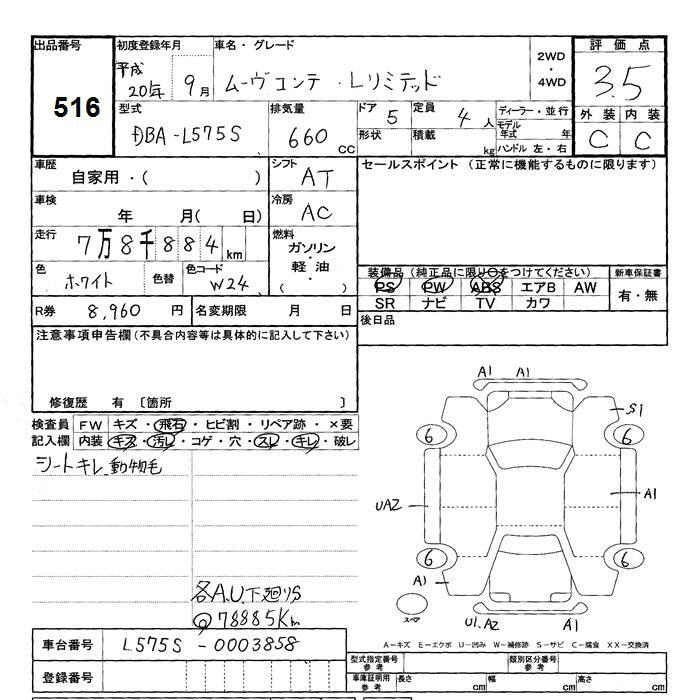 出品番号 初度登録年月 車名・グレード 2WD・4WD 評価点
516 平成20年 9月 ムーヴコンテ・Lリミテッド 3.5
型式 排気量 ドア 定員 ディーラー・並行 外装 内装
DBA-L575S 660 CC 5 4人 モデル年式 年 C C
形状 積載 kg ハンドル 左・右
車歴 シフト セールスポイント (正常に機能するものに限ります)
自家用・( ) AT
車検 冷房
年 月( 日) AC
走行 燃料
7万8千884km ガソリン・軽油・( )
色 色替 色コード 装備品 (純正品に限り○をつけてください) 新車保証書
ホワイト W24 PS PW ABS エアB AW 有・無
SR ナビ TV カワ
R券 8,960 円 名変期限 月 日 後日品
注意事項申告欄(不具合内容等は具体的に記入して下さい)
修復歴 有 〔箇所 〕
検査員 FW キズ・飛石・ヒビ割・リペア跡・×要
記入欄 内装 キズ・汚レ・コゲ・穴・スレ・キレ・破レ
シートキレ 動物毛
A1 A1
S1
6 6
UA2 A1
6 6
A1
スペア U1.A2 A1
各A.U.下廻りS
@78885Km
A-キズ E-エクボ U-凹み W-補修跡 S-サビ C-腐食 XX-交換済
車台番号 L575S-0003858
型式指定番号 参考 類別区分番号 参考
登録番号 車庫証明用 参考 長さ cm 幅 cm 高さ cm